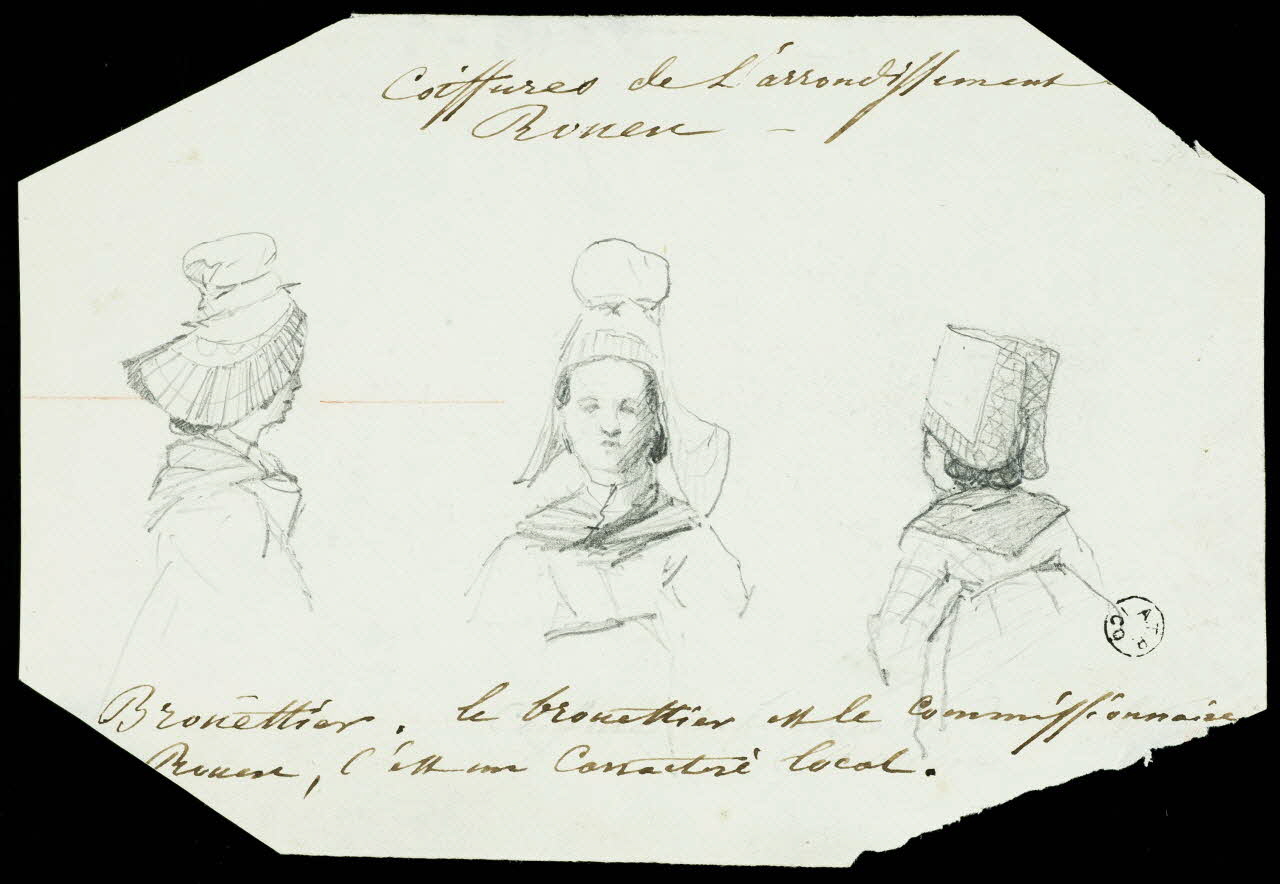 Coiffures de L'arrondissement
Rouen -
Brouettier. le brouettier est le Commissionnaire
Rouen, C'est un Caractère local.
ATP
CO